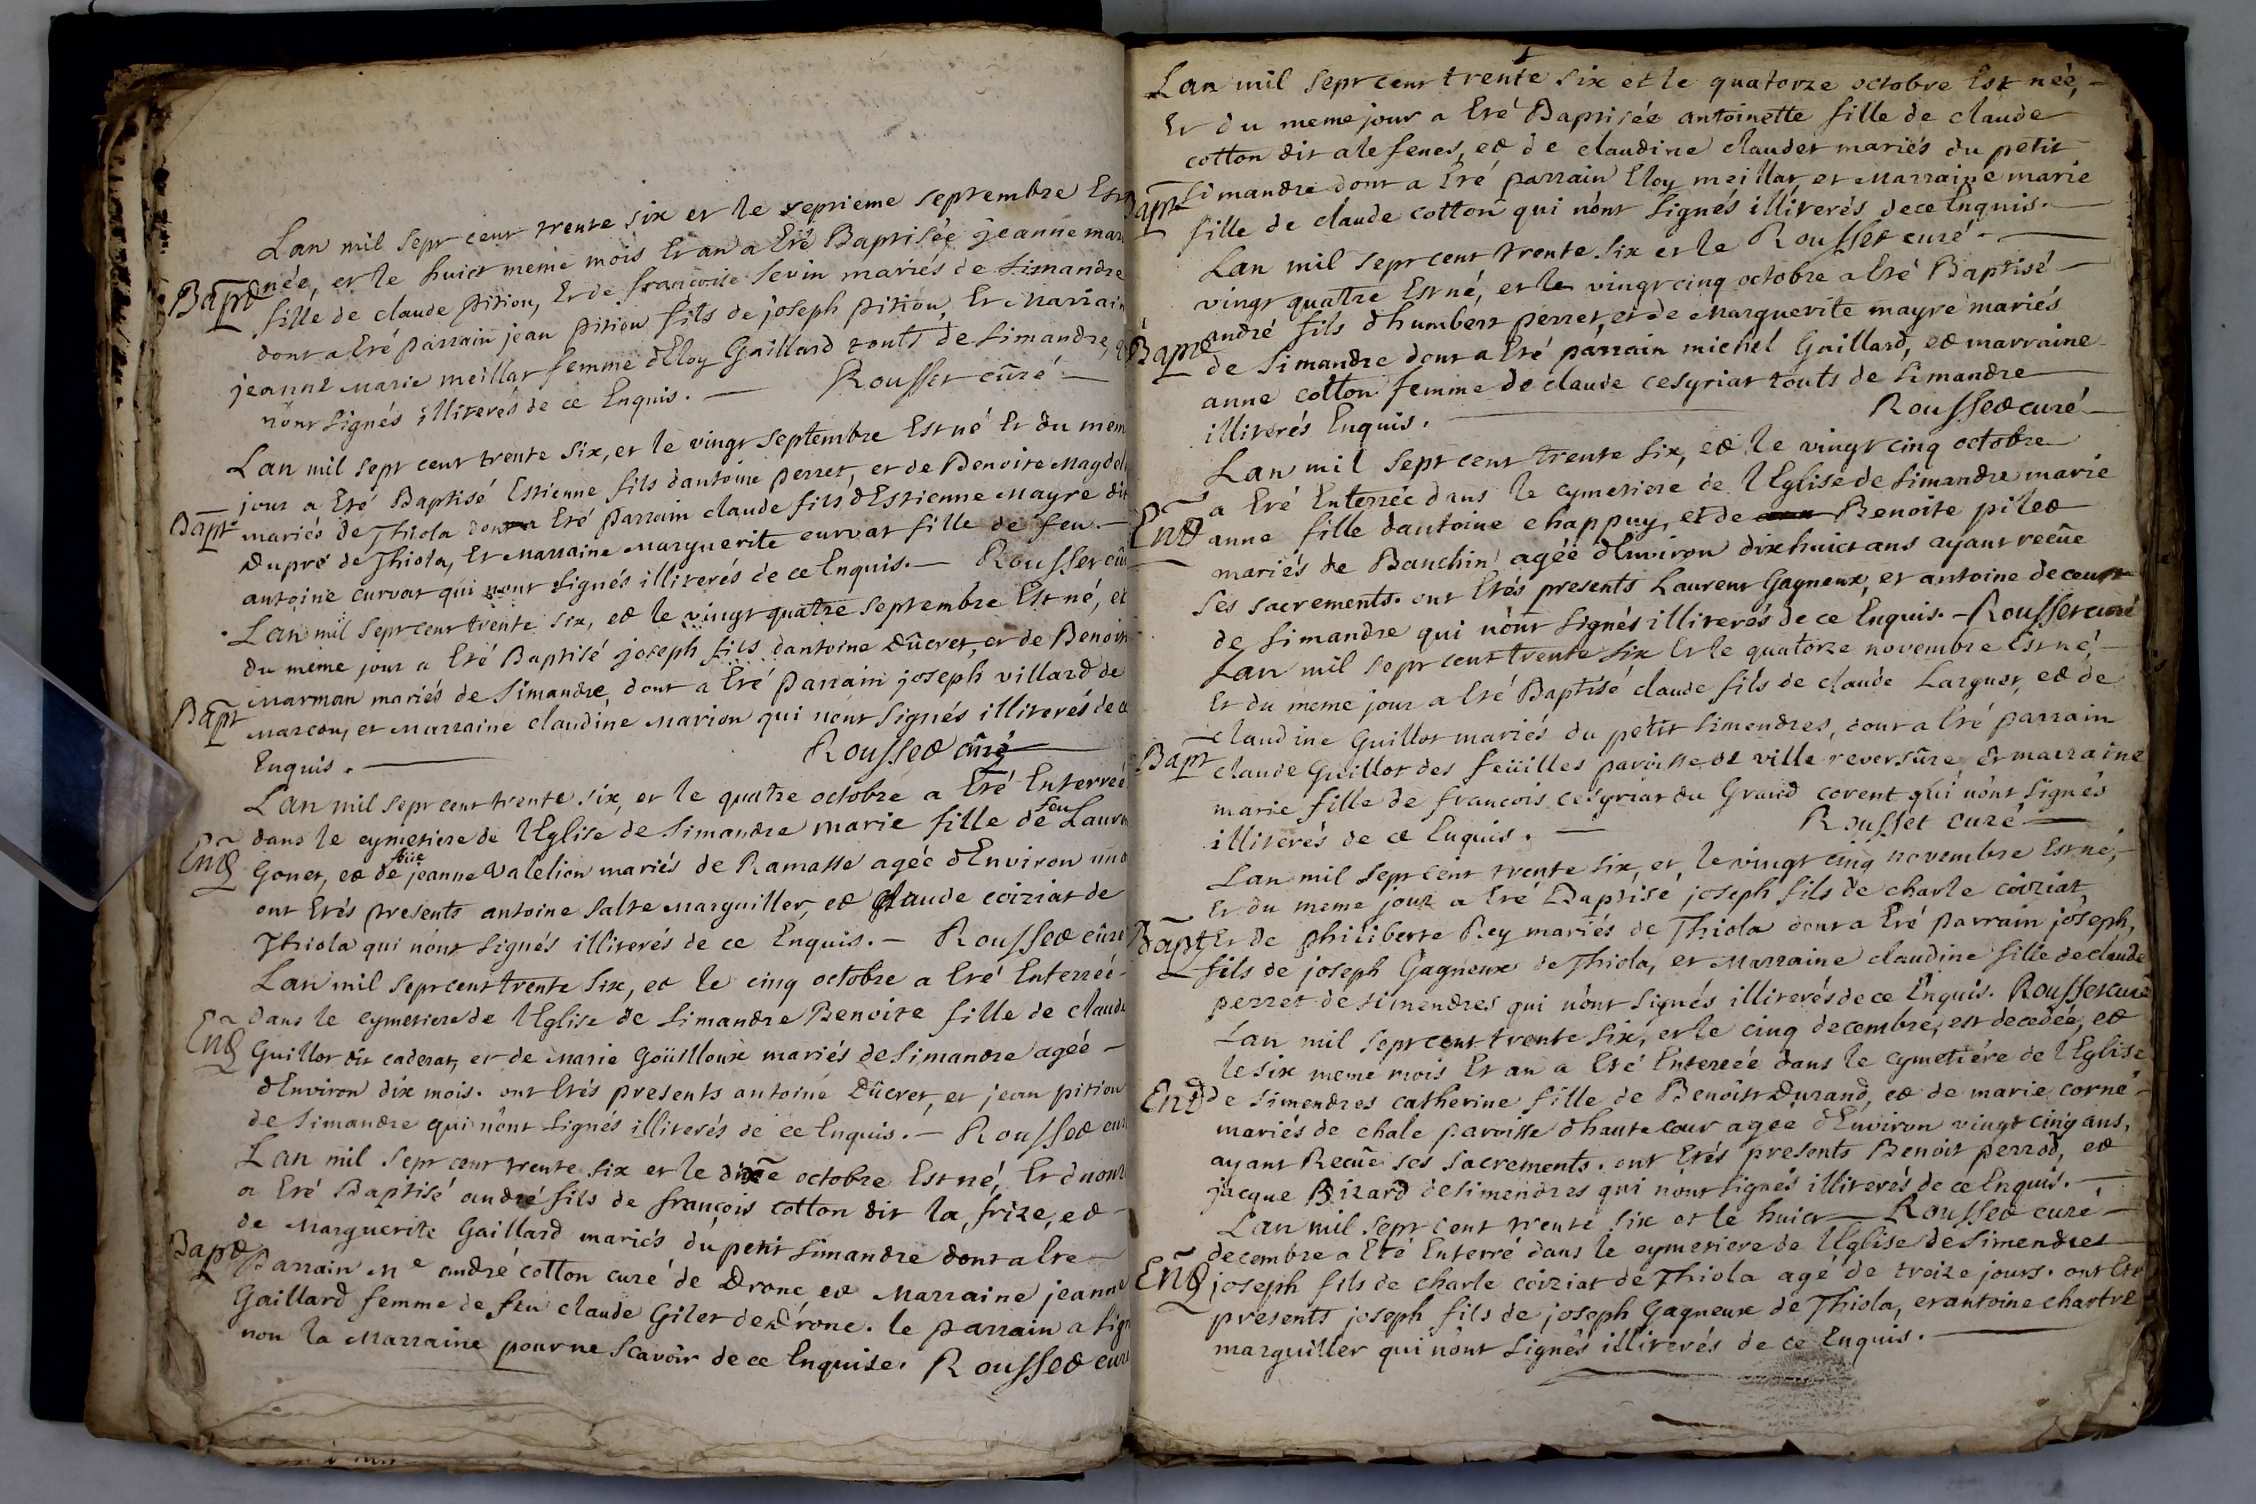 Lan mil sept cent trente six et le septieme septembre Est
Bapt née, et le huict meme mois Et an a Eté Baptisée jeanne mar
fille de claude pition, Et de francoise sevin mariés de simandre
dont a Eté parrain jean pition fils de joseph pition, Et Marrain
jeanne Marie meillat femme dEloy Gaillard touts de simandre, q
n'ont signés illiterés de ce Enquis. — Rousset curé —
Lan mil sept cent trente six, et le vingt septembre Est né Et du mem
jour a Eté Baptisé Estienne fils dantoine perret, et de Benoite Magdel
Bapt mariés de Thiola dont a Eté parrain claude fils dEstienne Mayre dit
Dupré de Thiola, Et Marraine Marguerite curvat fille de feu —
antoine curvat qui n'ont signés illiterés de ce Enquis. — Rousset cu
Lan mil sept cent trente six, et le vingt quatre septembre Est né, et
du meme jour a Eté Baptisé joseph fils dantoine Ducret, et de Benoit
Bapt Marman mariés de simandre, dont a Eté parrain joseph villard de
Marcon, et Marraine claudine Marion qui n'ont signés illiterés de c
Enquis. — Rousset curé
Lan mil sept cent trente six, et le quatre octobre a Eté Enterreé
dans le cymetiere de lEglise de simandre marie fille de feu Laure
Ent Gonet, et de jeanne valelion mariés de Ramasse agée dEnviron un
ont Etés presents antoine salte Marguiller, et claude coiziat de
Thiola qui n'ont signés illiterés de ce Enquis. — Rousset curé
Lan mil sept cent trente six, et le cinq octobre a Eté Enterreé —
dans le cymetiere de lEglise de simandre Benoite fille de claude
Ent Guillot dit caderat, et de Marie Goüilloux mariés de simandre agée —
dEnviron dix mois. ont Etés presents antoine Ducret, et jean pition
de simandre qui n'ont signés illiterés de ce Enquis. — Rousset cur
Lan mil sept cent trente six et le octobre Est né, Et
a Eté Baptisé andré fils de françois cotton dit la frize, et —
de Marguerite Gaillard mariés du petit simandre dont a Ete —
Bapt Parrain Me andré cotton curé de Drone et Marraine jeanne
Gaillard femme de feu claude Gilet de Drone. le parrain a sign
non la Marraine pour ne scavoir de ce Enquise. Rousset curé
Lan mil sept cent trente six et le quatorze octobre Est née, —
Et du meme jour a Eté Baptisée antoinette fille de claude
cotton dit alefenes, et de claudine claudet mariés du petit
Bapt simandre dont a Eté parrain Eloy meillat et Marraine marie
fille de claude cotton qui n'ont signés illiterés de ce Enquis. —
Lan mil sept cent trente six et le Rousset curé —
vingt quatre Est né, et le vingt cinq octobre a Eté Baptisé —
Bapt andré fils dhumbert perret, et de Marguerite mayre mariés
de simandre dont a Eté parrain michel Gaillard, et marraine
anne cotton femme de claude cesyriat touts de simandre
illiterés Enquis. — Rousset curé —
Lan mil sept cent trente six, et le vingt cinq octobre
a Eté Enterrée dans le cymetiere de lEglise de simandre marie
Ent anne fille dantoine chappuy, et de Benoite pilet
mariés de Banchin agée dEnviron dix huict ans ayant reçüe
ses sacrements. ont Etés presents Laurent Gagneux, et antoine decourt
de simandre qui n'ont signés illiterés de ce Enquis. — Rousset curé
Lan mil sept cent trente six Et le quatorze novembre Est né, —
Et du meme jour a Eté Baptisé claude fils de claude Larguet, et de
claudine Guillot mariés du petit simendres, dont a Eté parrain
Bapt claude Guillot des feüilles paroisse de ville reversüre, et marraine
marie fille de francois cesyriat du Grand corent qui n'ont signés
illiterés de ce Enquis. — Rousset curé —
Lan mil sept cent trente six, et le vingt cinq novembre Est né, —
Et du meme jour a Eté Baptisé joseph fils de charle coiziat,
Bapt Et de philiberte Rey mariés de Thiola dont a Eté parrain joseph,
fils de joseph Gagneux de Thiola, et Marraine claudine fille de claude
perret de simendres qui n'ont signés illiterés de ce Enquis. Rousset curé
Lan mil sept cent trente six, et le cinq decembre, est decedée, et
le six meme mois Et an a Eté Enterreé dans le cymetiére de lEglise
Ent de simendres catherine fille de Benoist Durand, et de marie corne —
mariés de chale paroisse dhaute cour agée dEnviron vingt cinq ans,
ayant Reçüe ses sacrements. ont Etés presents Benoit perrod, et
jacque Bizard de simendres qui n'ont signés illiterés de ce Enquis. —
Lan mil sept cent trente six et le huict — Rousset curé —
decembre a Eté Enterré dans le cymetiere de lEglise de simendres
Ent joseph fils de charle coiziat de Thiola agé de treize jours. ont Eté
presents joseph fils de joseph Gagneux de Thiola, et antoine chartre
marguiller qui n'ont signés illiterés de ce Enquis. —